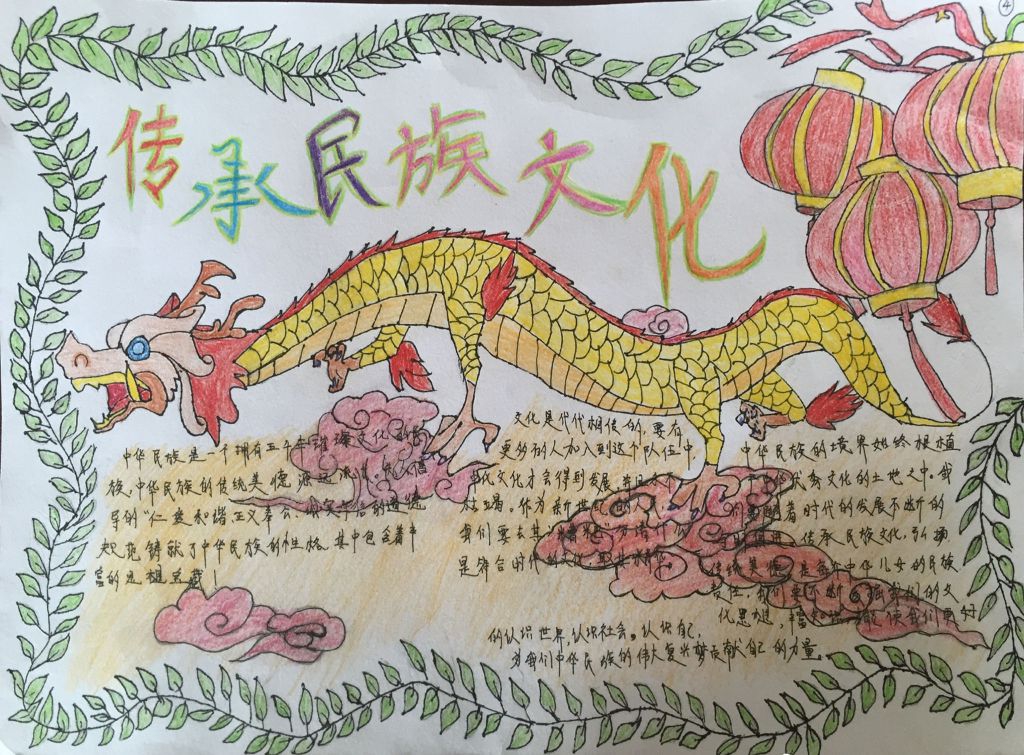 ④
传承民族文化
中华民族是一个拥有五千年璀璨文化的
族,中华民族的传统美德源远流
导的“仁爱和谐、正义奉公、诚实守信的道德
规范铸就了中华民族的性格,其中包含着丰
富的思想宝藏!
文化是代代相传的,要有
更多的人加入到这个队伍中
代文化才会得到发展
作为新世纪的人
我们要去其糟粕
是符合时代的文化
中华民族的境界始终根植
文化的土地之中。我
着时代的发展不断的
传承民族文化,弘扬
传统美德是每个中华儿女的民族
责任,我们要不断的文
化思想,使我们更好
的认识世界、认识社会。认识自己,
为我们中华民族的伟大复兴梦贡献自己的力量。